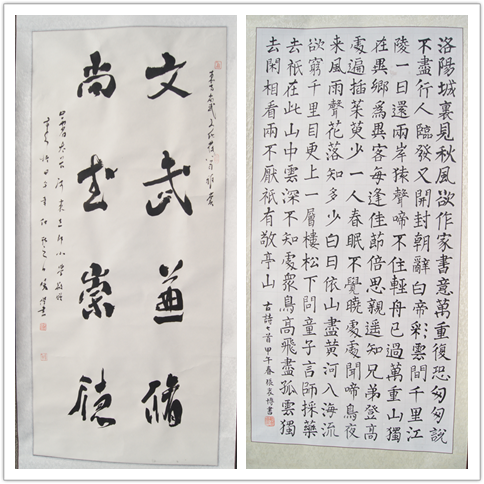 文武兼脩
尚武崇德
洛陽城裏見秋風欲作家書意萬重復恐匆匆説
不盡行人臨發又開封朝辭白帝彩雲間千里江
陵一日還兩岸猿聲啼不住輕舟已過萬重山獨
在異鄉為異客每逢佳節倍思親遥知兄弟登高
處遍插茱萸少一人春眠不覺曉處處聞啼鳥夜
來風雨聲花落知多少白日依山盡黃河入海流
欲窮千里目更上一層樓松下問童子言師採藥
去祇在此山中雲深不知處眾鳥高飛盡孤雲獨
去閑相看兩不厭祇有敬亭山
古詩七首甲午春張家博書